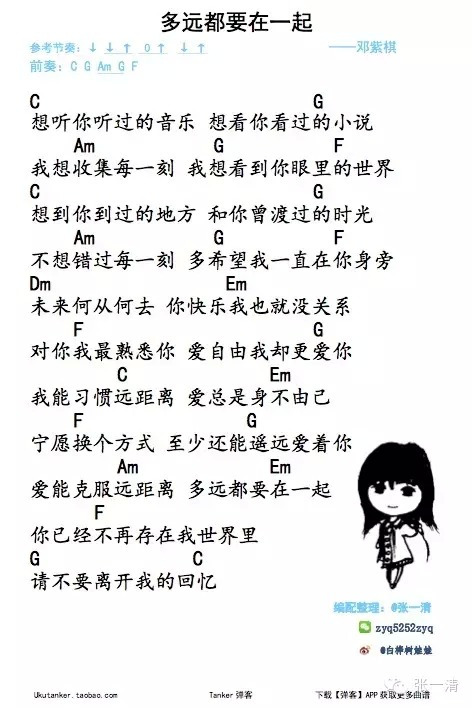 多远都要在一起
参考节奏：↓ ↓ ↑ 0 ↑ ↓ ↑ ——邓紫棋
前奏：C G Am G F
C G
想听你听过的音乐 想看你看过的小说
Am G F
我想收集每一刻 我想看到你眼里的世界
C G
想到你到过的地方 和你曾渡过的时光
Am G F
不想错过每一刻 多希望我一直在你身旁
Dm Em
未来何从何去 你快乐我也就没关系
F G
对你我最熟悉你 爱自由我却更爱你
C Em
我能习惯远距离 爱总是身不由己
F G
宁愿换个方式 至少还能遥远爱着你
Am Em
爱能克服远距离 多远都要在一起
F
你已经不再存在我世界里
G C
请不要离开我的回忆
编配整理：@张一清
zyq5252zyq
@白桦树妹妹
张一清
Ukutanker.taobao.com Tanker 弹客 下载【弹客】APP 获取更多曲谱